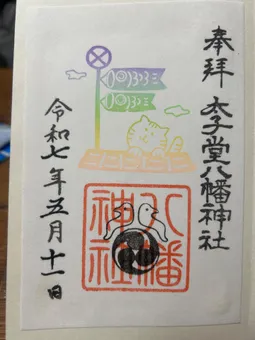 奉拝 太子堂八幡神社
八幡
神社
令和七年五月十一日